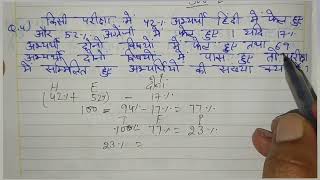 Q.4) किसी परीक्षा में 42% अभ्यर्थी हिंदी में फेल हुए
और 52% अंग्रेजी में फेल हुए। यदि 17%
अभ्यर्थी दोनों विषयों में फेल हुए तथा 69
अभ्यर्थी दोनों विषयों में पास हुए तो
में सम्मिलित हुए अभ्यर्थियों की संख्या
H E दोनों
(42% + 52%) - 17%
100 = 94 - 17 = 77%
T F P
100 - 77% = 23%
23% =